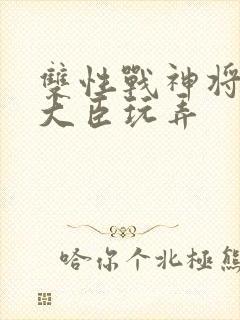 雙性戰神將
大臣玩弄
哈你个北極熊